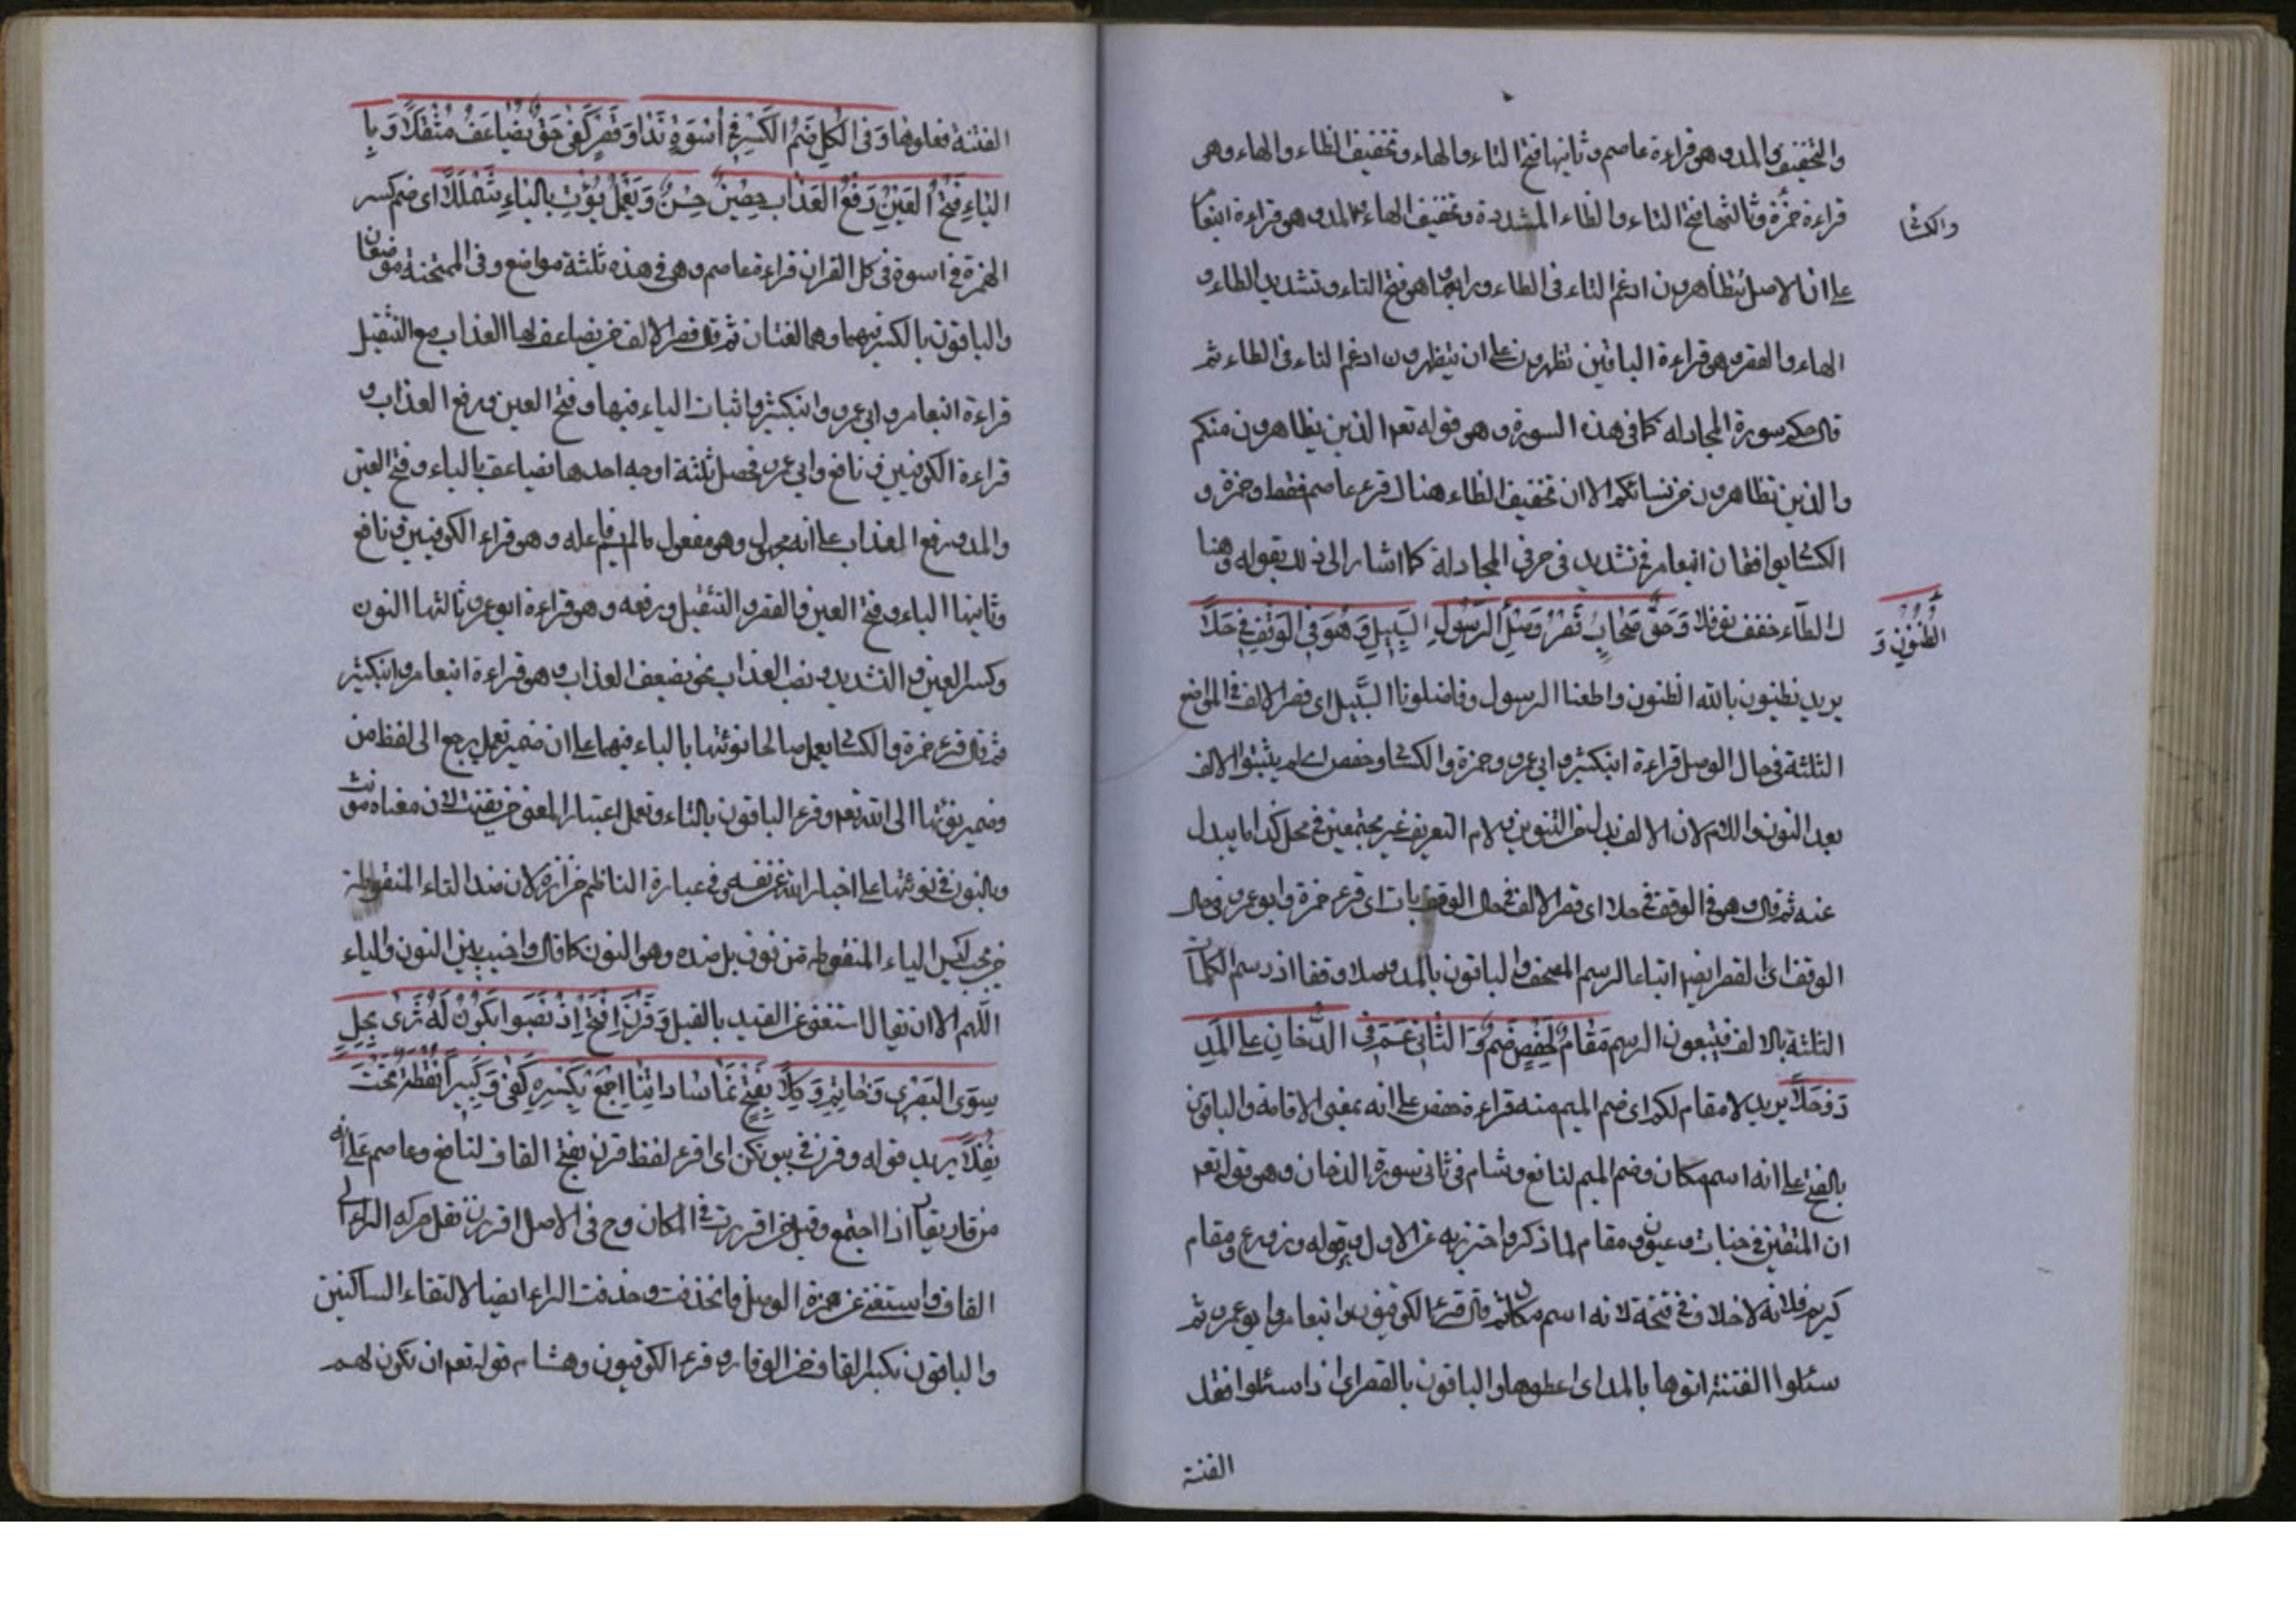 والتخفيف والمد وهو قراءة عاصم وثانيها فتح التاء والهاء وتخفيف الظاء والهاء وهى
قراءة حمزة وثالثها فتح التاء والظاء المشددة وتخفيف الهاء مع المد وهو قراءة ابنعا
والكسا
على ان الاصل يتظاهرون ادغم التاء فى الظاء ورابعها هو فتح التاء وتشديد الظاء و
الهاء والقصر وهى قراءة الباقين تظهرون على ان يتظهرون ادغم التاء فى الظاء ثم
قال حكم سورة المجادله كما فى هذه السورة وهى قوله تعه الذين يظاهرون منكم
والذين تظاهرون من نسائكم الا ان تخفيف الظاء هنالك قرء عاصم فقط وحمزة و
الكسا يوافقان ابنعامر فى تشديد فى حرفى المجادلة كما اشار الى ذلك بقوله وهنا
ك الظاء خفف نوفلا وَحَقُّ صِحَابٍ قَصْرُ وَصْلِ الرَسُولِ السَبِيلِ وَهُوَ فى الوَقْفِ فِى حَلَا
الظُنُونِ وَ
يريد تظنون بالله الظنون واطعنا الرسول وفاضلونا السَّبيل اى قصر الالف فى المواضع
الثلثة فى حال الوصل قراءة ابنكثير وابى عمرو وحمزة والكسا وحفص اى لم يثبتوا الالف
بعد النون واللام لان الالف بدل من التنوين ولام التعريف غير مجتمعين فى محل كذا ما يبدل
عنه ثم قال وهو فى الوقف فى حلا اى قصر الالف فى حال الوقف بات اى قرء حمزة وابو عمرو فى حال
الوقف اى القصر ايضا اتباعا لرسم المصحف والباقون بالمد وصلا وقفا اذ رسم الكلمات
الثلثة بالالف فيتبعون الرسم مَقَامَ لِحَفْصٍ ضُمَّ وَالثَّانى عَمَّ فِى الدُّخَانِ على المَدِ
ذو حَلَا يريد لا مقام لكم اى ضم الميم منه قراءة حفص على انه بمعنى الاقامة والباقون
بالفتح على انه اسم مكان وضم الميم لنافع وشام فى ثانى سورة الدخان وهو قوله تعه
ان المتقين فى جنات وعيون ومقام لما ذكر واحترز به عن الاول وقوله وزروع ومقام
كريم فلانه لا خلاف فى فتحة لانه اسم مكان ثم قال قرء الكوفيون وابنعامر وابو عمرو ثم
سئلوا الفتنة اتوها بالمد اى اعطوها والباقون بالقصر اى اذا سئلوا فعل
الفتنة
الفتنة فعلوها وَفى الكُلِ ضَمُّ الكَسْرِ فى أُسْوَةٍ نَدَا وَقَصْرُ كَفَى حَقٍّ يُضَاعَفُ مُثَقَّلَا وَ بِا
اليَاءِ فَتْحُ العَيْنِ رَفْعُ العَذَابِ حِصْنُ حُسْنٍ وَيَعْمَلْ يُؤْتِ بِاليَاءِ شَمْلَلَا اى ضم كسر
الهمزة فى اسوة فى كل القران قراءة عاصم وهى فى هذه ثلثة مواضع وفى الممتحنة موضعان
والباقون بالكسر فيهما وهما لغتان ثم قال قصر الالف من يضاعف لها العذاب مع التثقيل
قراءة ابنعامر وابى عمرو وابنكثير واثبات الياء فيها وفتح العين ورفع العذاب و
قراءة الكوفيين ونافع وابى عمرو فحصل ثلثة اوجه احدها يضاعف بالياء وفتح العين
والمد ورفع العذاب على انه مجهول وهو مفعول مالم يسم فاعله وهو قراء الكوفيين ونافع
وثانيها الياء وفتح العين والقصر والتثقيل ورفعه وهو قراءة ابو عمرو ثالثها النون
وكسر العين والتشديد ونصب العذاب نحو نضعف العذاب وهو قراءة ابنعامر وابنكثير
ثم قال قرء حمزة والكسا يعمل صالحا نوئتها بالياء فيهما على ان ضمير تعمل يرجع الى لفظ من
وضمير نؤتها الى الله تعه وقرء الباقون بالتاء وتعمل اعتبار المعنى من يقنت لان معناه مؤنث
وبالنون فى نوئتها على اخبار الله عن نفسه وفى عبارة الناظم لان ضد التاء المنقوطة
ليس الياء المنقوطة من فوق بل ضده وهو النون كما قال واخيت بين النون والياء
اللهم الا ان يقال استغنى عن القيد بالقبل وَقَرْنَ افْتَحْ إِذْ نَصَبُوا يَكُونَ لَهُ ثَرَىْ يَحِلُّ
سِوَى البَصْرِى وَخَاتِمَ وُكِّلَا بِفَتْحٍ نَمَا سَادَاتِنَا اجْمَعْ بِكَسْرِهِ كَفَى وَكَثِيراً نُقْطَةٌ تَحْتَ
نُفِّلَا يريد قوله وقرن فى بيوتكن اى اقرء لفظ قرن بفتح القاف لنافع وعاصم على انه
من قار يقار اذا اجتمع وقيل من اقررت فى المكان وح فى الاصل اقررن نقل حركه الراء الى
القاف واستغنى عن همزة الوصل فانحذفت وحذفت الراء ايضا لالتقاء الساكنين
والباقون بكسر القاف من الوقار وقرء الكوفيون وهشام قوله تعه ان تكون لهم